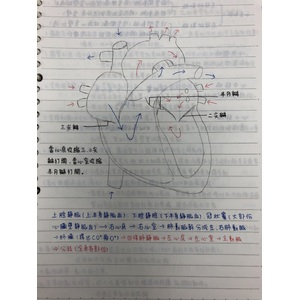 半月瓣
二尖瓣
三尖瓣
當心房收縮三、二尖
瓣打開,當心室收縮
半月瓣打開。
上腔靜脈(上半身靜脈血)下腔靜脈(下半身靜脈血)冠狀竇(大部份
心臟靜脈血)→右心房→右心室→肺動脈幹分成左、右肺動脈
→肺臟
→左心房→左心室→主動脈